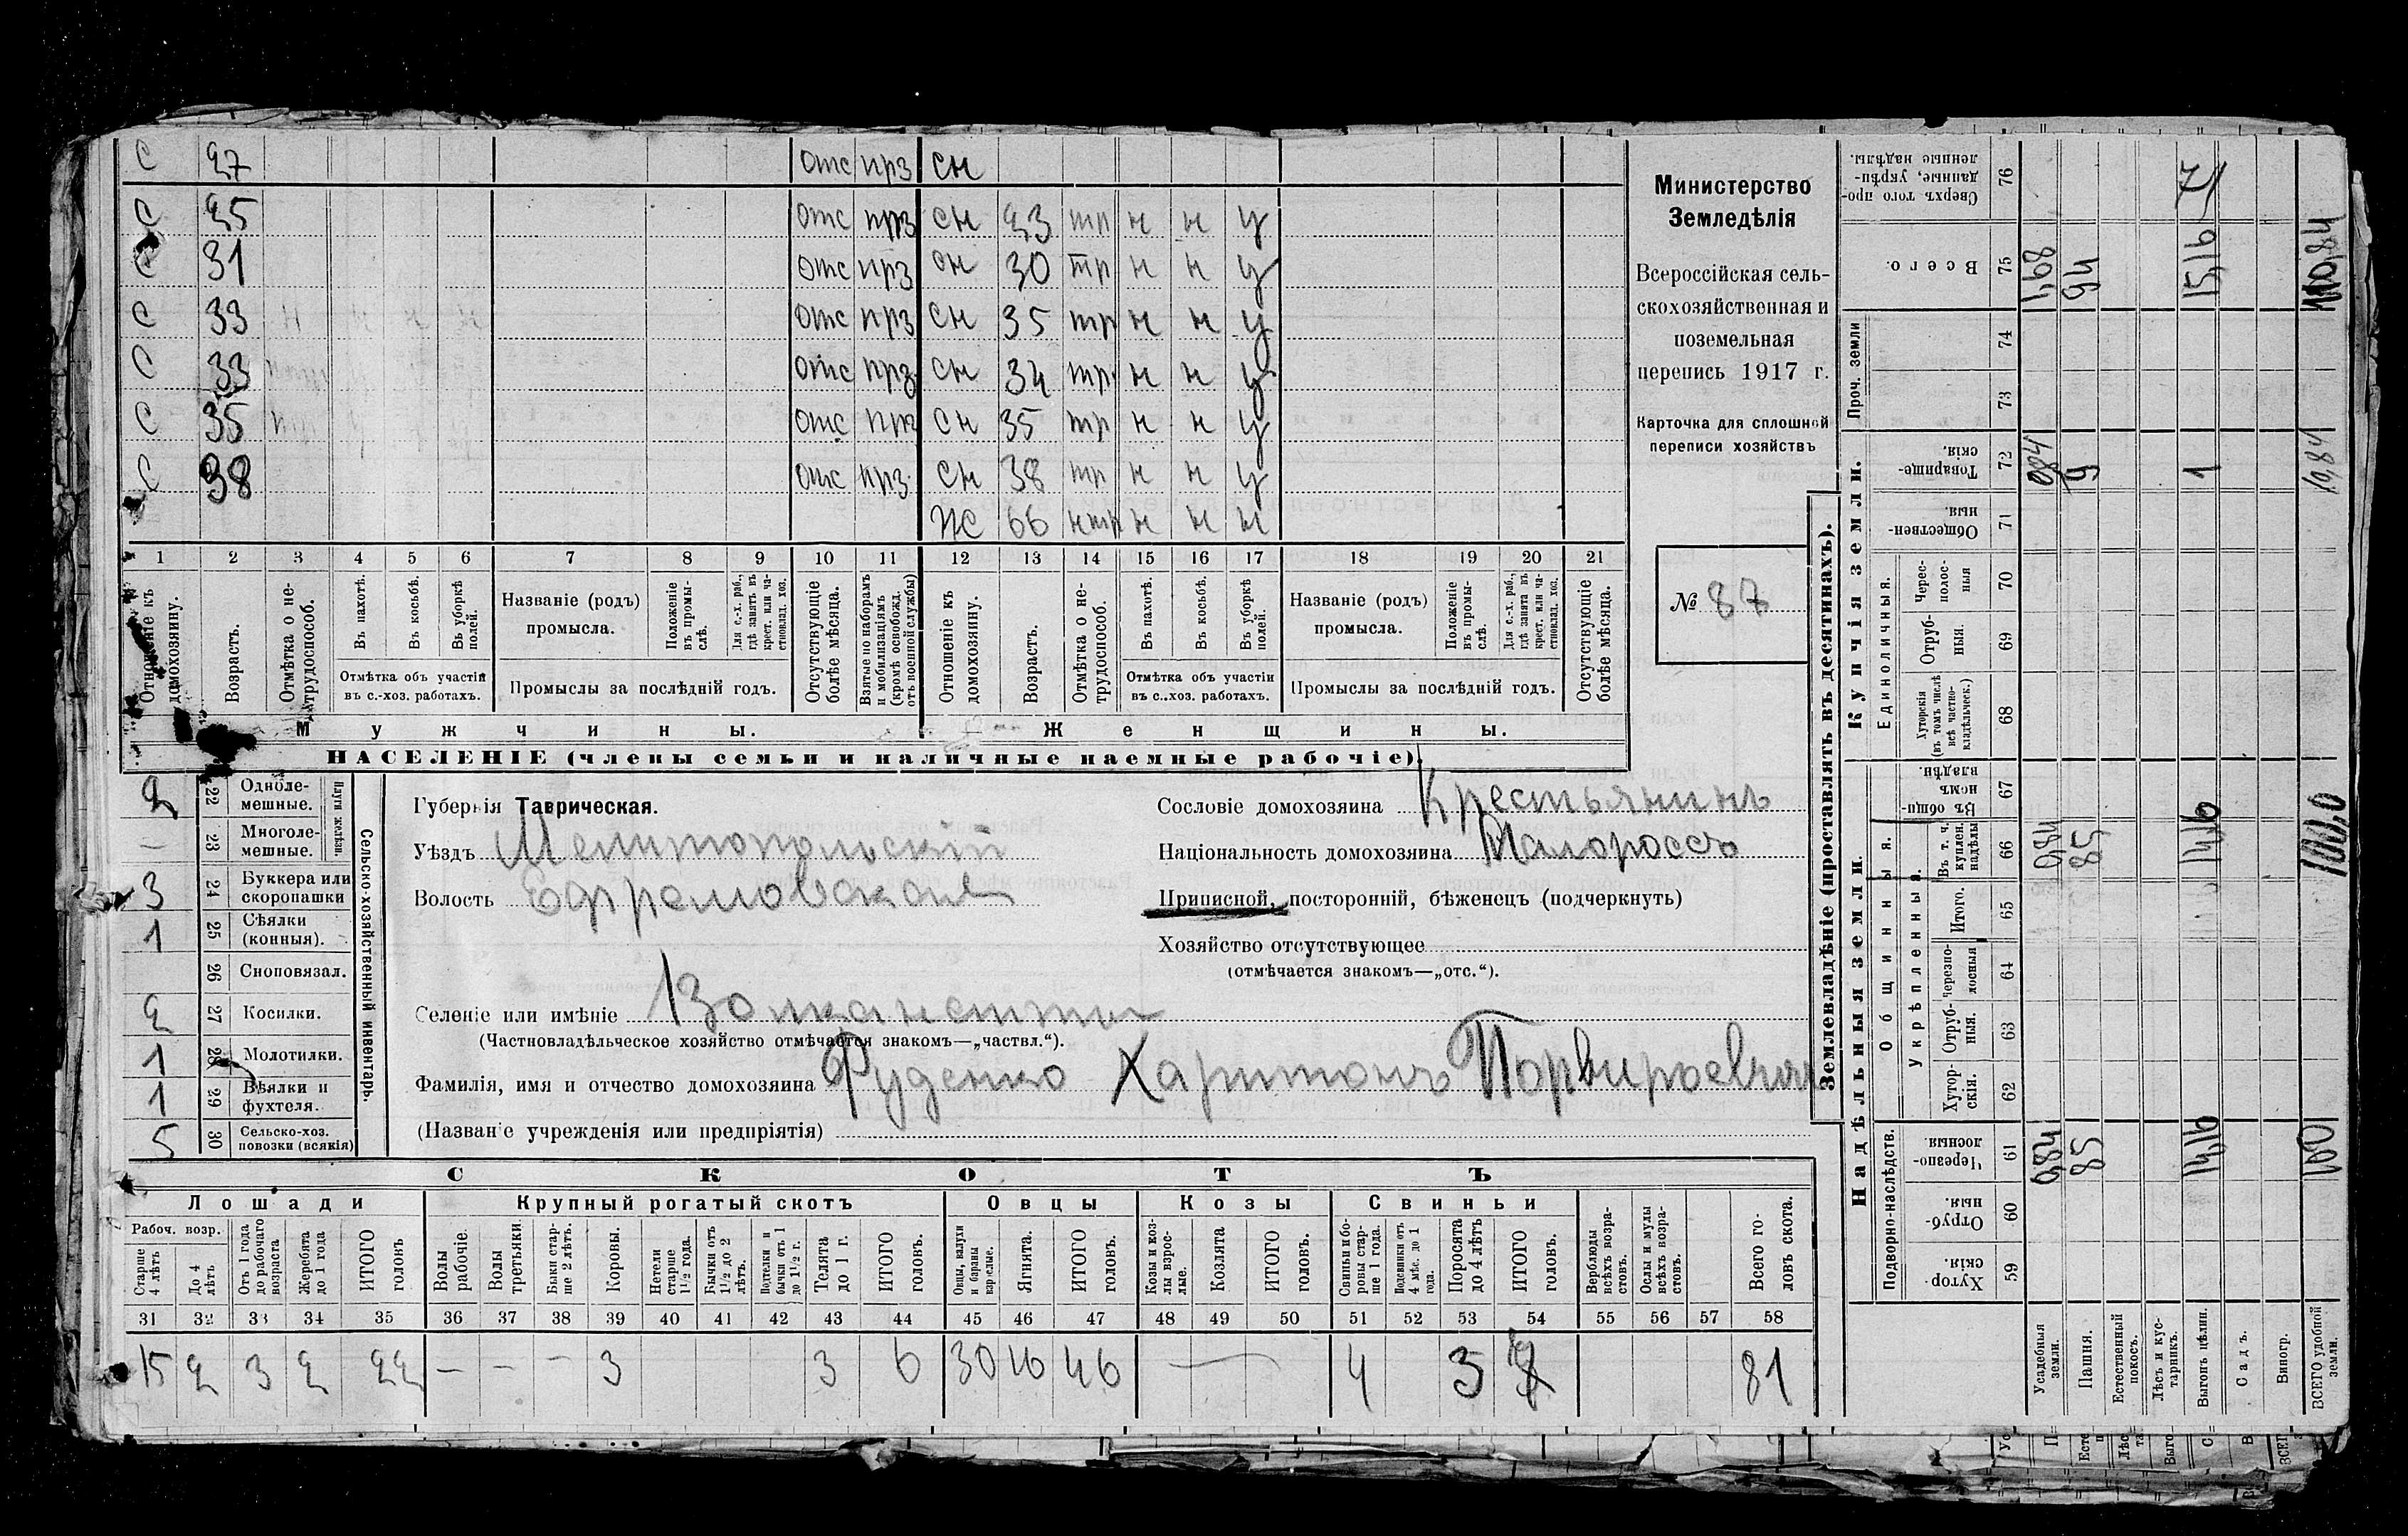 С 27 отс прз сн
С 25 отс прз сн 23 тр н н у
С 31 отс прз сн 30 тр н н у
С 33 отс прз сн 35 тр н н у
С 33 отс прз сн 34 тр н н у
С 35 отс прз сн 35 тр н н у
С 38 отс прз сн 38 тр н н у
ж 66 нтр н н н
1 2 3 4 5 6 7 8 9 10 11 12 13 14 15 16 17 18 19 20 21
Отношеніе къ домохозяину.
Возрастъ.
Отмѣтка о нетрудоспособ.
Въ пахотѣ.
Въ косьбѣ.
Въ уборкѣ полей.
Отмѣтка объ участіи
въ с.-хоз. работахъ.
Названіе (родъ)
промысла.
Положеніе въ промыслѣ.
Для с.-х. раб., гдѣ занятъ въ крест. или частновлад. хоз.
Промыслы за послѣдній годъ.
Отсутствующіе болѣе мѣсяца.
Взятые по наборамъ и мобилизаціямъ (кромѣ освобожд. отъ военной службы)
Отношеніе къ домохозяину.
Возрастъ.
Отмѣтка о нетрудоспособ.
Въ пахотѣ.
Въ косьбѣ.
Въ уборкѣ полей.
Отмѣтка объ участіи
въ с.-хоз. работахъ.
Названіе (родъ)
промысла.
Положеніе въ промыслѣ.
Для с.-х. раб., гдѣ занята въ крест. или частновлад. хоз.
Промыслы за послѣдній годъ.
Отсутствующіе болѣе мѣсяца.
Мужчины. Женщины.
НАСЕЛЕНІЕ (члены семьи и наличные наемные рабочіе).
Министерство
Земледѣлія
Всероссійская сель-
скохозяйственная и
поземельная
перепись 1917 г.
Карточка для сплошной
переписи хозяйствъ
№ 87
Сельско-хозяйственный инвентарь.
Плуги желѣзн.
2 22 Одноле-
мешные.
— 23 Многоле-
мешные.
3 24 Буккера или
скоропашки
1 25 Сѣялки
(конныя).
26 Сноповязал.
2 27 Косилки.
1 28 Молотилки.
1 29 Вѣялки и
фухтеля.
5 30 Сельско-хоз.
повозки (всякія)
Губернія Таврическая.
Уѣздъ Мелитопольскій
Волость Ефремовская
Селеніе или имѣніе
(Частновладѣльческое хозяйство отмѣчается знакомъ—„частвл.“).
Фамилія, имя и отчество домохозяина Руденко Харитонъ Порвирьевичъ
(Названіе учрежденія или предпріятія)
Сословіе домохозяина Крестьянинъ
Національность домохозяина Малороссъ
Приписной, посторонній, бѣженецъ (подчеркнуть)
Хозяйство отсутствующее
(отмѣчается знакомъ—„отс.“).
СКОТЪ
Лошади Крупный рогатый скотъ Овцы Козы Свиньи
Рабоч. возр.
Старше 4 лѣтъ
До 4 лѣтъ
Отъ 1 года до рабочаго возраста
Жеребята до 1 года
ИТОГО головъ
Волы рабочіе.
Волы третьяки.
Быки старше 2 лѣтъ.
Коровы.
Нетели старше 1½ года.
Бычки отъ 1½ до 2 лѣтъ.
Подтелки и бычки отъ 1 до 1½ г.
Телята до 1 г.
ИТОГО головъ.
Овцы, валухи и бараны взрослые.
Ягнята.
ИТОГО головъ.
Козы и козлы взрослые.
Козлята
ИТОГО головъ.
Свиньи и боровы старше 1 года.
Подсвинки отъ 4 мѣс. до 1 года.
Поросята до 4 лѣтъ
ИТОГО головъ.
Верблюды всѣхъ возрастовъ.
Ослы и мулы всѣхъ возрастовъ.
Всего головъ скота.
31 32 33 34 35 36 37 38 39 40 41 42 43 44 45 46 47 48 49 50 51 52 53 54 55 56 57 58
15 2 3 2 22 — — — 3 3 6 30 16 46 — 4 3 81
Землевладѣніе (проставлять въ десятинахъ).
Надѣльныя земли. Купчія земли. Проч. земли
Подворно-наслѣдств. Общинныя. Единоличныя.
Укрѣпленныя.
59 Хуторскія.
60 Отрубныя.
61 Черезполосныя
62 Хуторскія.
63 Отрубныя.
64 Черезполосныя
65 Итого.
66 Въ т. ч. куплен. надѣлы
67 Въ общинномъ владѣн.
68 Хуторскія (въ томъ числѣ всѣ частновладѣльческ.)
69 Отрубныя.
70 Чересполосныя
71 Общественныя.
72 Товарищескія.
73
74
75 Всего.
76 Сверхъ того проданные, укрѣпленные надѣлы.
Усадебныя земли. 0,84 0,84 084 1,68
Пашня. 85 85 9 94
Естественный покосъ.
Лѣсъ и кустарникъ.
Выгонъ цѣлин. 14,16 14,16 1 15,16
Садъ.
Виногр.
ВСЕГО удобной земли. 100 100,0 10,84 110,84